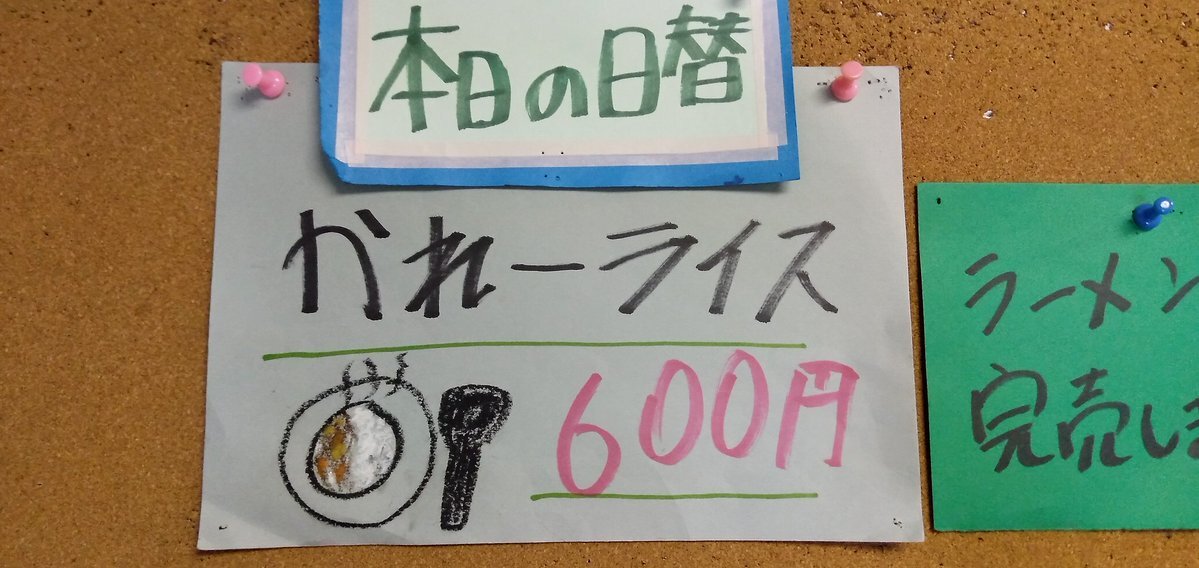 本日の日替
かれーライス
600円
ラーメン
完売しま